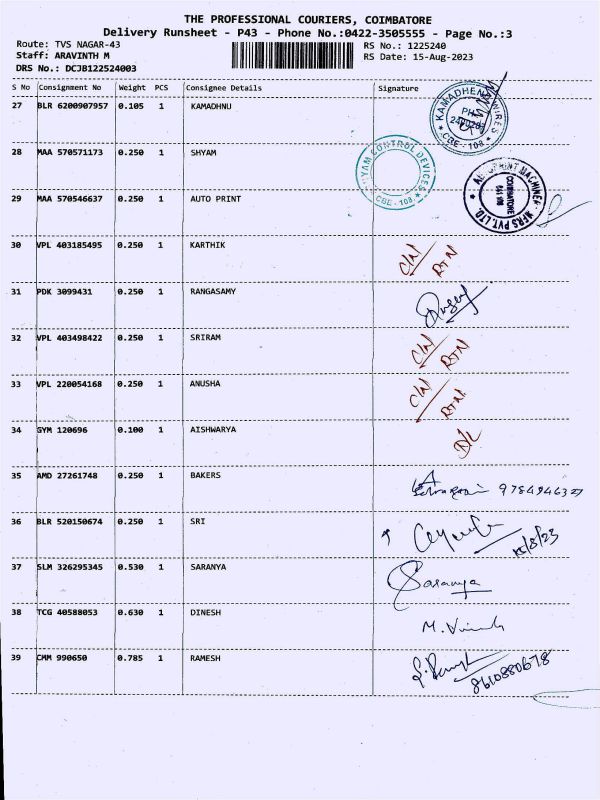 THE PROFESSIONAL COURIERS, COIMBATORE
Delivery Runsheet - P43 - Phone No.:0422-3505555 - Page No.:3
Route: TVS NAGAR-43 RS No.: 1225240
Staff: ARAVINTH M RS Date: 15-Aug-2023
DRS No.: DCJB122524003
S No Consignment No Weight PCS Consignee Details Signature
27 BLR 6200907957 0.105 1 KAMADHNU KAMADHENU WIRES PH: CBE-108
28 MAA 570571173 0.250 1 SHYAM CONTROL DEVICES CBE-108
29 MAA 570546637 0.250 1 AUTO PRINT PRINT MACHINERY MFRS PVT. LTD. COIMBATORE
30 VPL 403185495 0.250 1 KARTHIK C/N/ RTN
31 PDK 3099431 0.250 1 RANGASAMY
32 VPL 403498422 0.250 1 SRIRAM C/N/ RTN
33 VPL 220054168 0.250 1 ANUSHA C/N/ RTN
34 GYM 120696 0.100 1 AISHWARYA D/L
35 AMD 27261748 0.250 1 BAKERS
36 BLR 520150674 0.250 1 SRI
37 SLM 326295345 0.530 1 SARANYA Saranya
38 TCG 40588053 0.630 1 DINESH
39 CMM 990650 0.785 1 RAMESH 8610880678